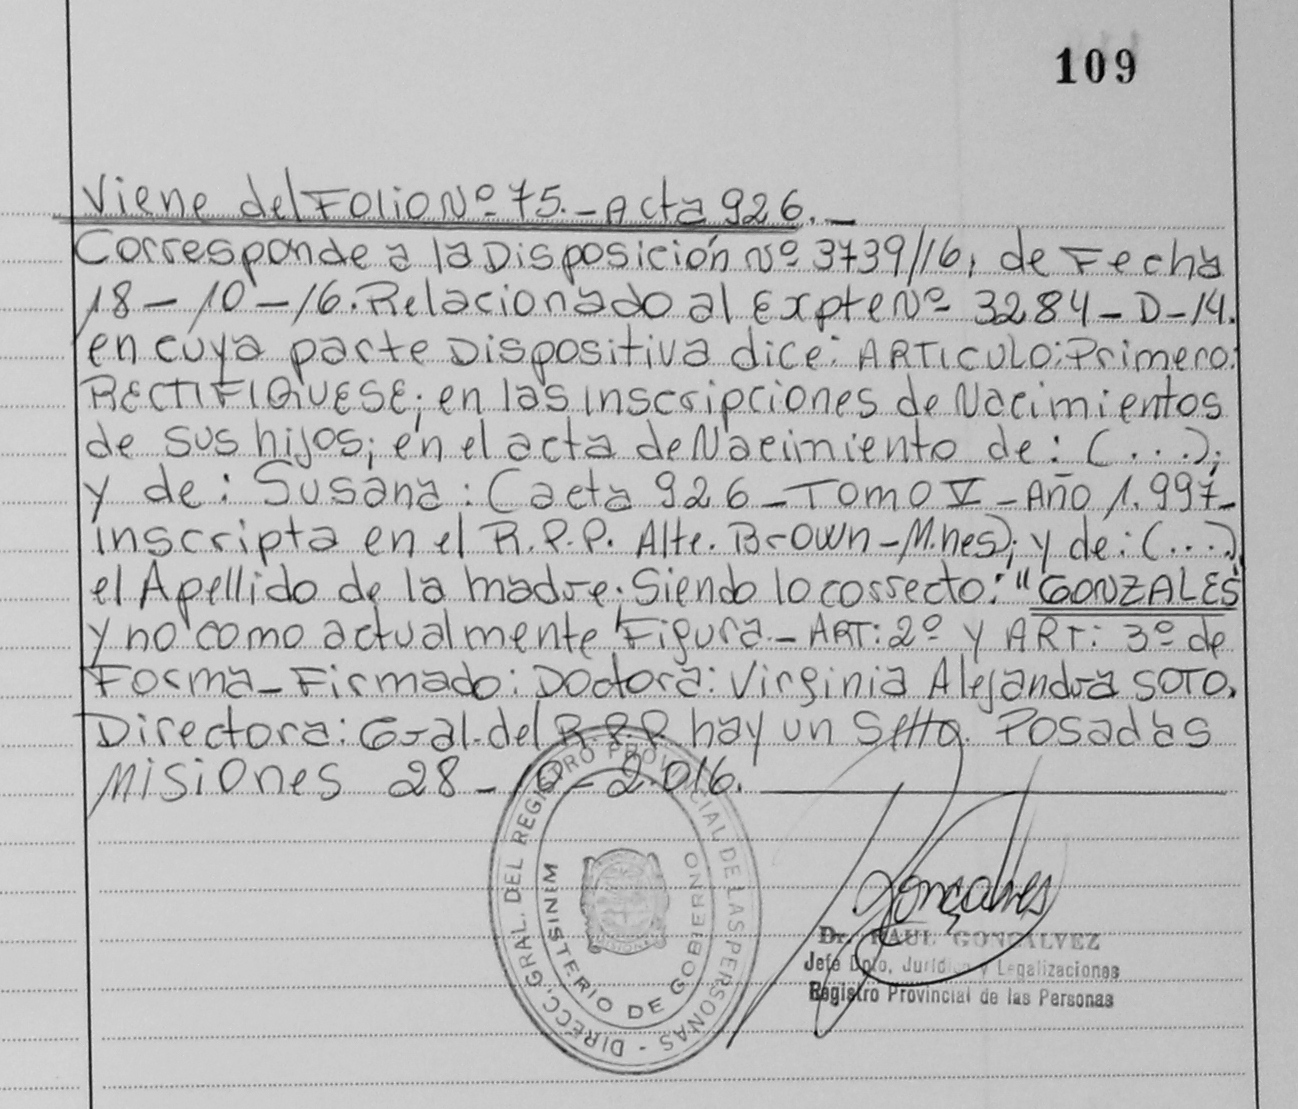 109
Viene del Folio Nº 75.- Acta 926.-
Corresponde a la Disposición Nº 3739/16, de Fecha
18-10-16. Relacionado al Expte Nº 3284-D-14.
en cuya parte Dispositiva dice: ARTICULO: Primero:
RECTIFIQUESE; en las inscripciones de Nacimientos
de sus hijos; en el acta de Nacimiento de: (...);
y de: Susana: (acta 926-Tomo V-Año 1.997-
inscripta en el R.P.P. Alte. Brown-M.nes); y de: (...)
el Apellido de la madre. Siendo lo correcto: "GONZALES"
y no como actualmente Figura.- ART: 2º y ART: 3º de
Forma-Firmado: Doctora: Virginia Alejandra SOTO.
Directora: Gral. del R.P.P. hay un Sello. Posadas
Misiones 28-10-2.016.
DIRECC. GRAL. DEL REGISTRO PROVINCIAL DE LAS PERSONAS -
MINISTERIO DE GOBIERNO
MISIONES
Gonçalves
Dr. RAUL GONCALVEZ
Jefe Dpto, Jurídico y Legalizaciones
Registro Provincial de las Personas